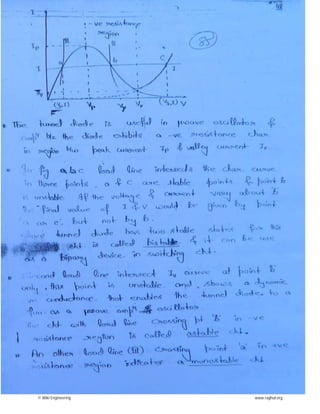 I
-ve resistance
region
Ip
II
III
a
b
C
I
(V, I) Vp Vv Vf (V2, I) V
• The tunnel diode is useful in μwave oscillator &
ampr the diode exhibits a -ve resistance char.
in region b/w peak current Ip & valley current Iv.
In fig a b c load line intersects the char. curve
in three points. a & c are stable points & point b
is unstable. If the voltage & current vary about b
the final value of I & V would be given by point
a or c but not by b.
tunnel diode has two stable states for this
ckt is called bistable & it can be use
as a Binary device in switching ckt.
Second load line intersect Iv curve at point b
only, this point is unstable and shows a dynamic
-ve conductance that enables the tunnel diode to
fun as a μwave ampr oscillator.
The ckt with load line crossing pt 'b' in -ve
resistance region is called astable ckt.
• An other load line (III) crossing point 'a' in +ve
resistance region indicates a monostable ckt.
© Wiki Engineering
www.raghul.org